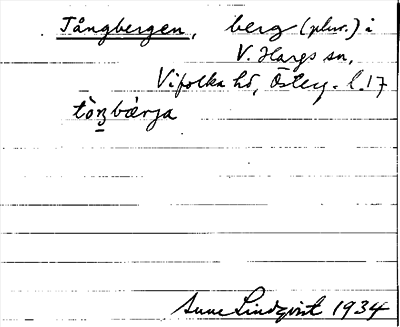 Tångbergen, berg (plur.) i
V. Hargs sn,
Vifolka hd, Östg. l. 17
tò̀ŋbærja
Sune Lindqvist 1934